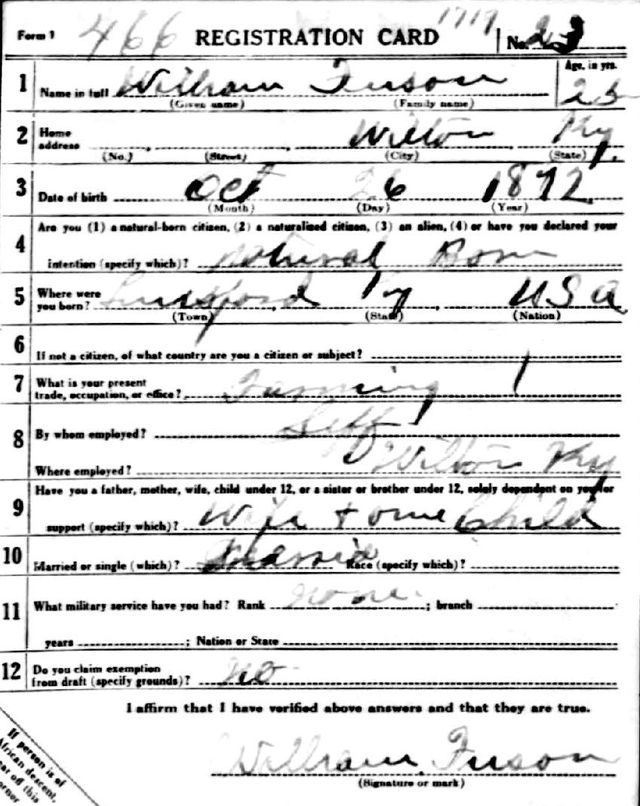 Form 1 466 REGISTRATION CARD 1719 No. 23
1 Name in full William Fuson Age, in yrs. 25
(Given name) (Family name)
2 Home address Wilton Ky.
(No.) (Street) (City) (State)
3 Date of birth Oct 26 1892
(Month) (Day) (Year)
4 Are you (1) a natural-born citizen, (2) a naturalized citizen, (3) an alien, (4) or have you declared your
intention (specify which)? Natural Born
5 Where were you born? Ky USA
(Town) (State) (Nation)
6 If not a citizen, of what country are you a citizen or subject?
7 What is your present
trade, occupation, or office? Farming
8 By whom employed? Self
Where employed? Wilton Ky
9 Have you a father, mother, wife, child under 12, or a sister or brother under 12, solely dependent on you for
support (specify which)? Wife + one Child
10 Married or single (which)? Race (specify which)?
11 What military service have you had? Rank none ; branch
years ; Nation or State
12 Do you claim exemption
from draft (specify grounds)? no
I affirm that I have verified above answers and that they are true.
William Fuson
(Signature or mark)
If person is of
African descent,
tear off this
corner